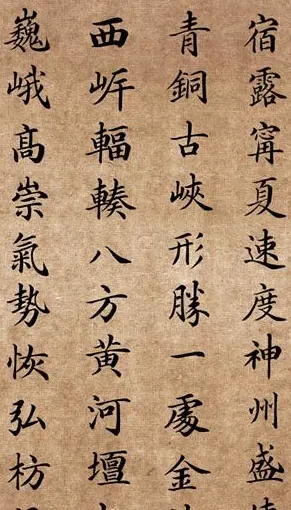 宿露甯夏速度神州盛
青銅古峽形勝一處金
西岍輻輳八方黃河壇
巍峨髙崇氣勢恢弘枋